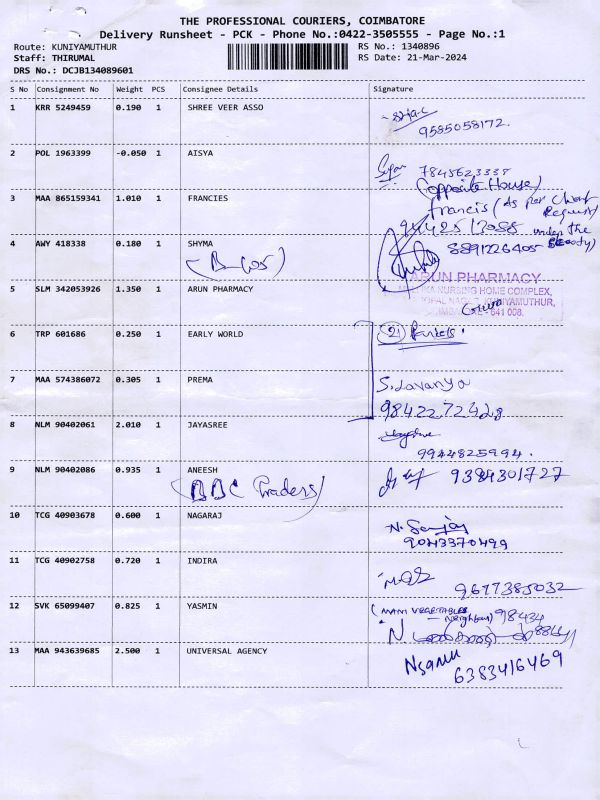 THE PROFESSIONAL COURIERS, COIMBATORE
Delivery Runsheet - PCK - Phone No.:0422-3505555 - Page No.:1
Route: KUNIYAMUTHUR
Staff: THIRUMAL
DRS No.: DCJB134089601
RS No.: 1340896
RS Date: 21-Mar-2024
S No Consignment No Weight PCS Consignee Details Signature
1 KRR 5249459 0.190 1 SHREE VEER ASSO
9585058172.
2 POL 1963399 -0.050 1 AISYA
(opposite House)
3 MAA 865159341 1.010 1 FRANCIES
Francis (As per Client
Request)
under the
4 AWY 418338 0.180 1 SHYMA
8891226405
5 SLM 342053926 1.350 1 ARUN PHARMACY
ARUN PHARMACY
NURSING HOME COMPLEX,
KUNIYAMUTHUR,
641 008.
6 TRP 601686 0.250 1 EARLY WORLD
(21)
7 MAA 574386072 0.305 1 PREMA
S. Lavanya
9842272428
8 NLM 90402061 2.010 1 JAYASREE
9944825994.
9 NLM 90402086 0.935 1 ANEESH
(BBC Traders)
9384301727
10 TCG 40903678 0.600 1 NAGARAJ
N. Sanjay
9043370499
11 TCG 40902758 0.720 1 INDIRA
9677385032
12 SVK 65099407 0.825 1 YASMIN
(MANI VEGETABLES
Neighbour) 98434
13 MAA 943639685 2.500 1 UNIVERSAL AGENCY
6383416469